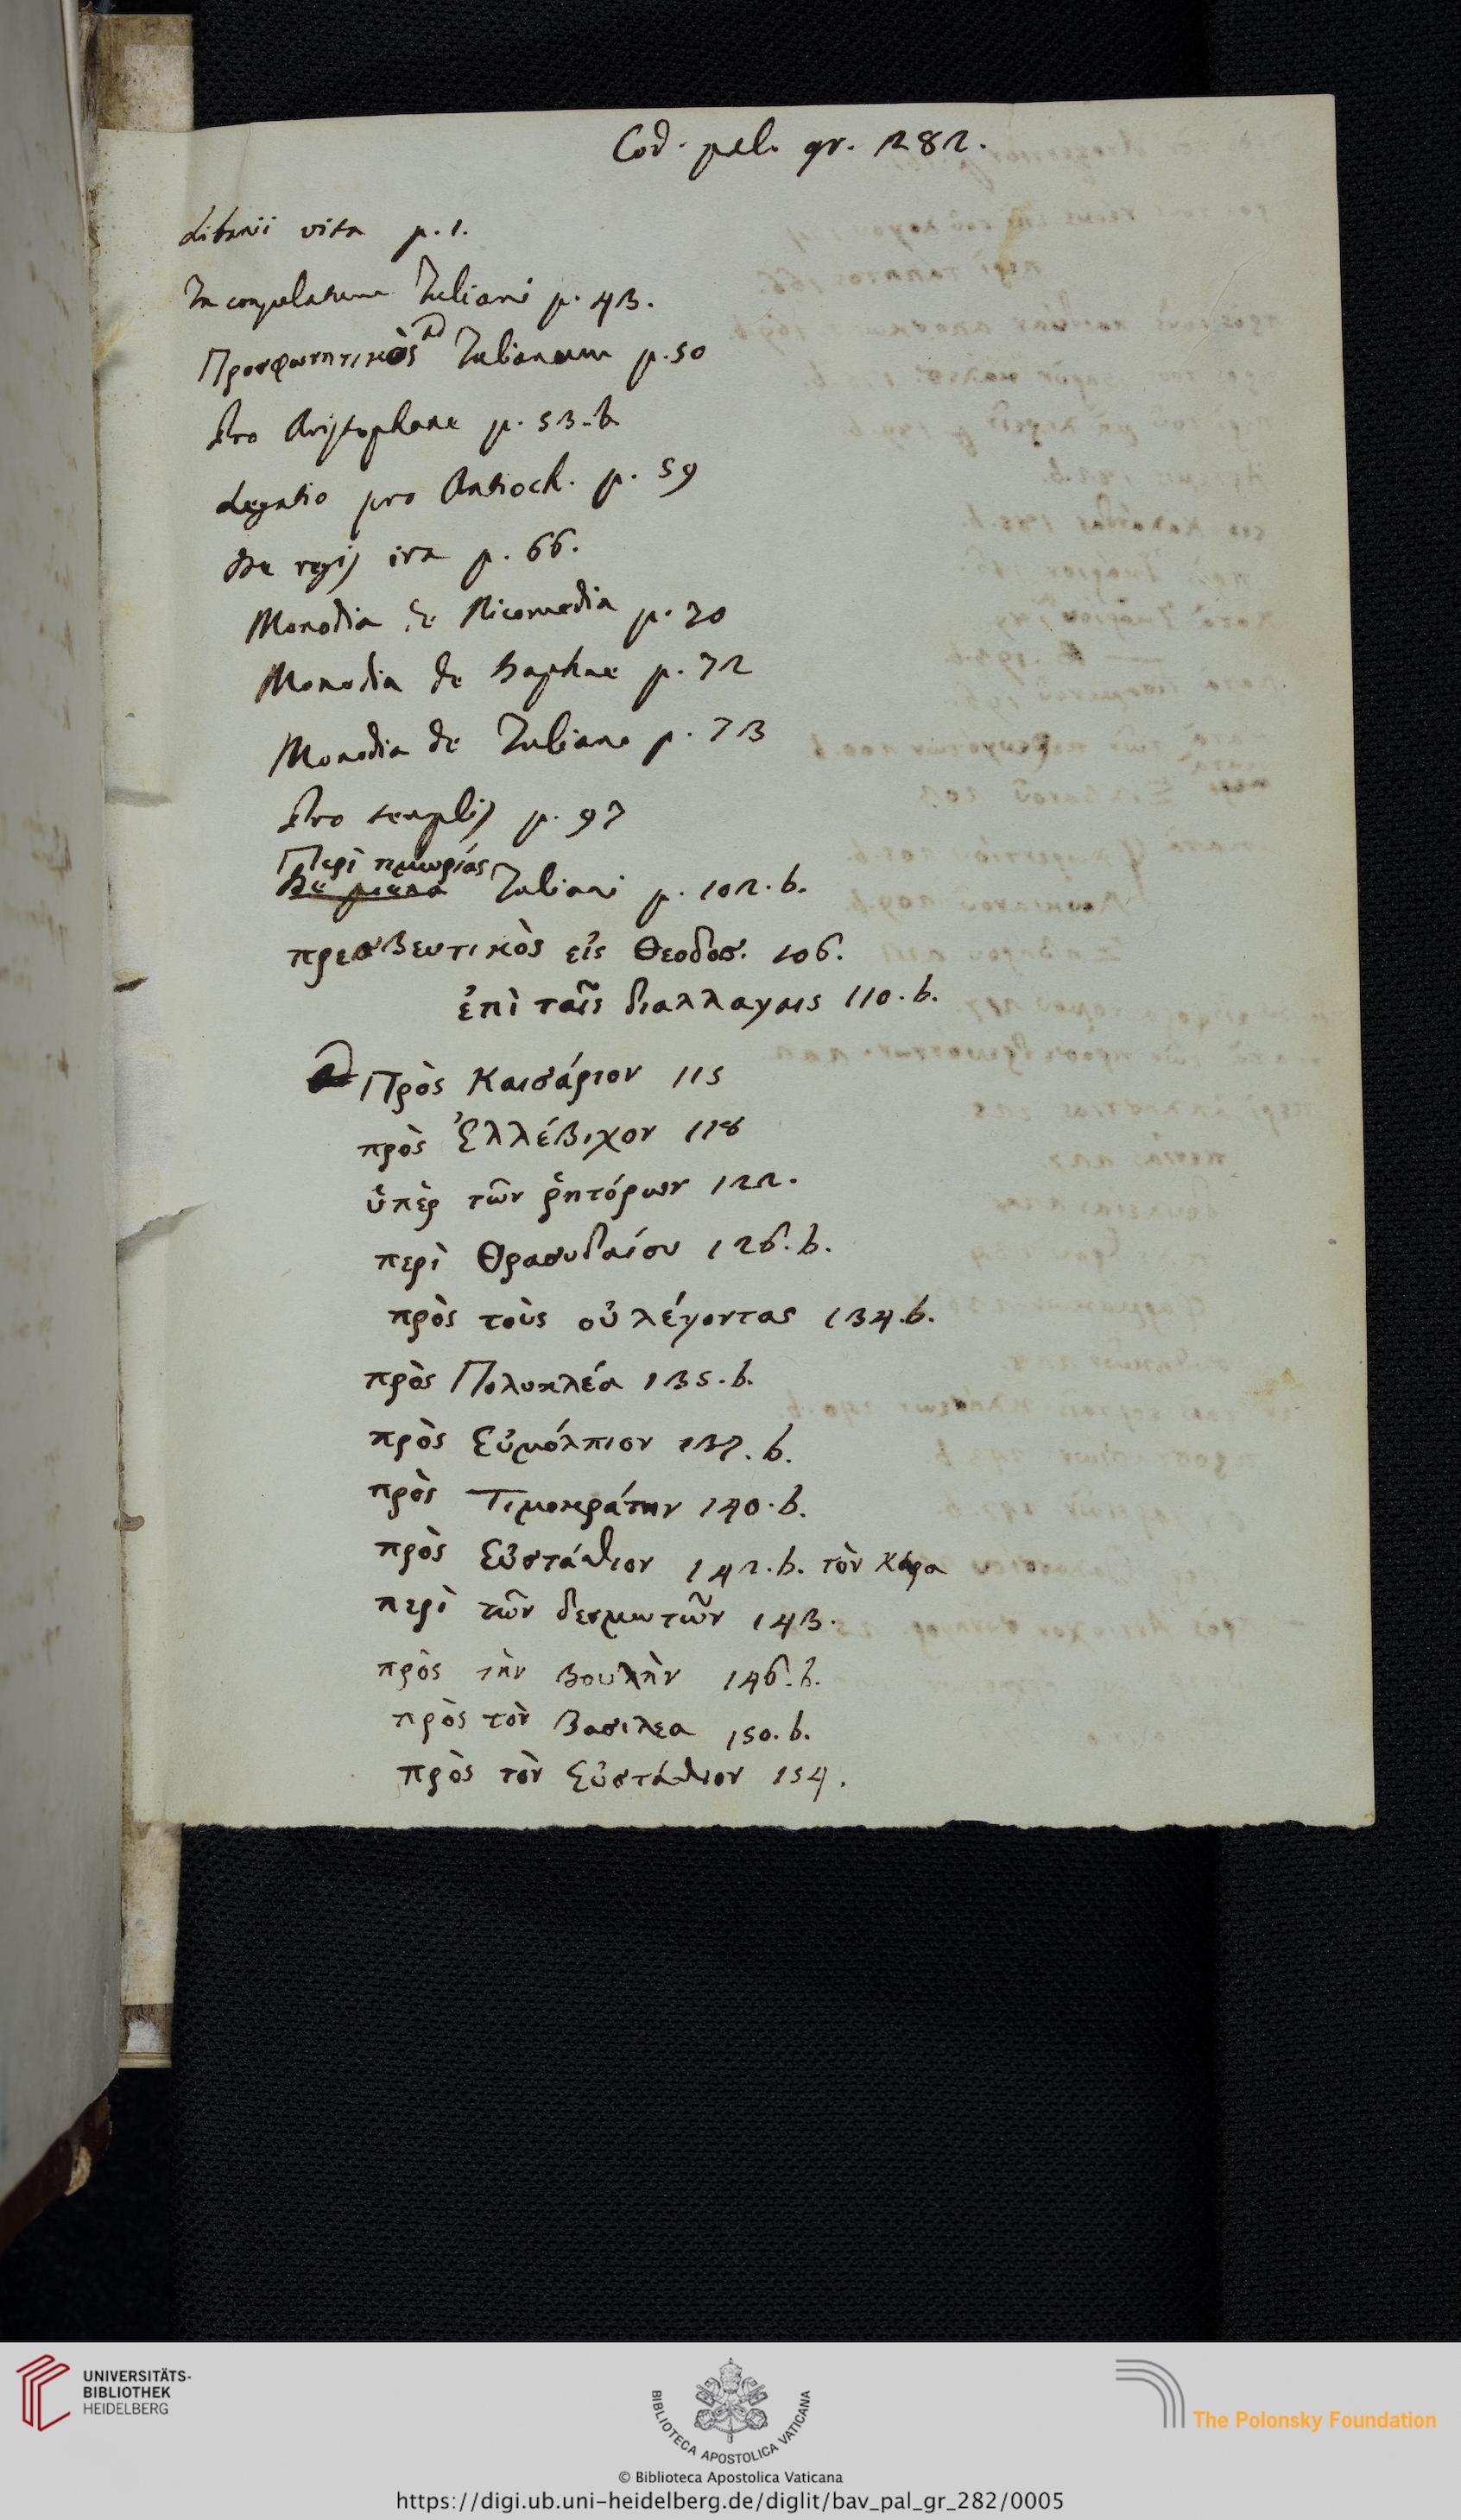 Cod. pal. gr. 282.
Libanii vita p. 1.
In consulatum Iuliani p. 43.
Προσφωνητικὸς ad Iulianum p. 50
Pro Aristophane p. 53. b
Legatio pro Antioch. p. 59
De regis ira p. 66.
Monodia de Nicomedia p. 70
Monodia de Daphne p. 72
Monodia de Iuliano p. 73
Pro templis p. 97
Περὶ τιμωρίας
De poena Iuliani p. 102. b.
πρεσβευτικὸς εἰς Θεοδοσ. 106.
ἐπὶ ταῖς διαλλαγαις 110. b.
Πρὸς Καισάριον 115
πρὸς Ἑλλέβιχον 118
ὑπὲρ τῶν ῥητόρων 122.
περὶ Θρασυδαίου 126. b.
πρὸς τοὺς οὐ λέγοντας 134. b.
πρὸς Πολυκλέα 135. b.
πρὸς Εὐμόλπιον 137. b.
πρὸς Τιμοκράτην 140. b.
πρὸς Εὐστάθιον 142. b. τὸν Κάρα
περὶ τῶν δεσμωτῶν 143.
πρὸς τὴν βουλὴν 146. b.
πρὸς τὸν βασιλεα 150. b.
πρὸς τὸν Εὐστάθιον 154.
UNIVERSITÄTS-
BIBLIOTHEK
HEIDELBERG
BIBLIOTECA APOSTOLICA VATICANA
The Polonsky Foundation
© Biblioteca Apostolica Vaticana
https://digi.ub.uni-heidelberg.de/diglit/bav_pal_gr_282/0005